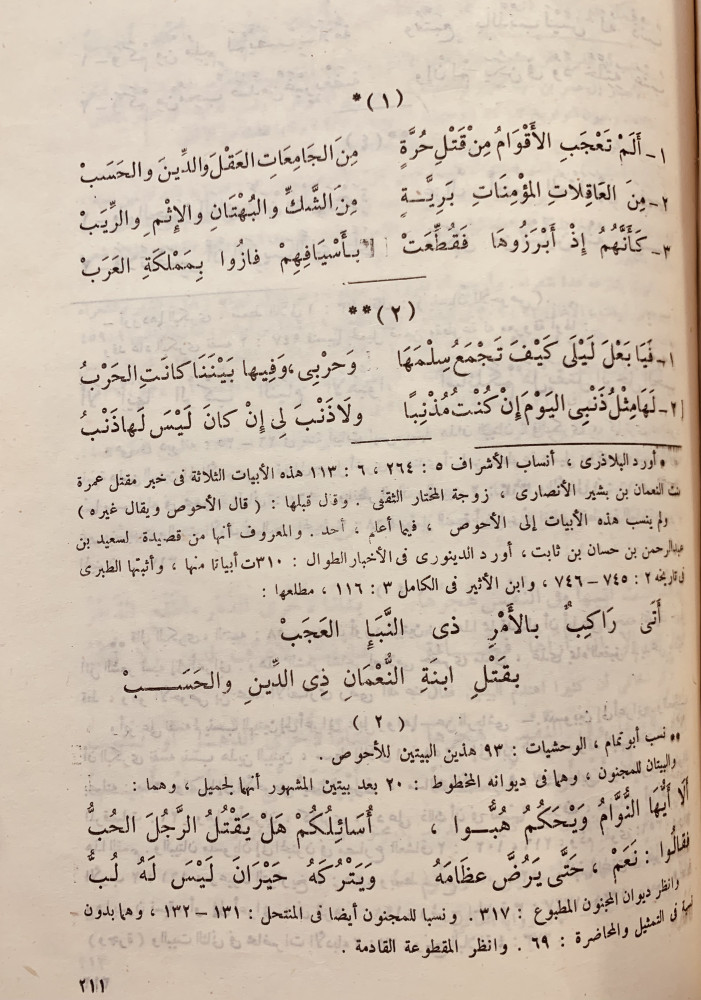 (١) *
١ـ أَلَمْ تَعْجَبِ الأَقْوَامُ مِنْ قَتْلِ حُرَّةٍ مِنَ الجَامِعَاتِ العَقْلَ والدِّينَ والحَسَبْ
٢ـ مِنَ العَاقِلاتِ المؤْمِنَاتِ بَرِيَّـةٍ مِنَ الشَّكِّ والبُهْتَانِ والإِثْمِ والرِّيَبْ
٣ـ كَأَنَّهُمُ إِذْ أَبْرَزُوهَا فَقُطِّعَتْ بِأَسْيَافِهِمْ فازُوا بِمَمْلكَةِ العَرَبْ
(٢) **
١ـ فَيَا بَعْلَ لَيْلَى كَيْفَ تَجْمَعُ سِلْمَهَا وَحَرْبِى، وَفِيها بَيْنَنَا كانَتِ الحَرْبُ
٢ـ لَهَا مِثْلُ ذَنْبِى اليَوْمَ إِنْ كُنْتُ مُذْنِبًا ولاَ ذَنْبَ لِى إِنْ كانَ لَيْسَ لَها ذَنْبُ
* أورد البلاذرى ، أنساب الأشراف ٥ : ٢٦٤ ، ٦ : ١١٣ هذه الأبيات الثلاثة فى خبر مقتل عمرة
بنت النعمان بن بشير الأنصارى ، زوجة المختار الثقفى . وقال قبلها : ( قال الأحوص ويقال غيره )
ولم ينسب هذه الأبيات إلى الأحوص ، فيما أعلم ، أحد . والمعروف أنها من قصيدة لسعيد بن
عبدالرحمن بن حسان بن ثابت، أورد الدينورى فى الأخبار الطوال : ٣١٠ت أبياتا منها ، وأثبتها الطبرى
فى تاريخه ٢ : ٧٤٥ – ٧٤٦ ، وابن الأثير فى الكامل ٣ : ١١٦ ، مطلعها :
أَتَى رَاكِبٌ بالأَمْرِ ذى النَّبَإِ العَجَبْ
بقَتْلِ ابنَةِ النُّعْمَانِ ذِى الدِّينِ والحَسَـــبْ
( ٢ )
** نسب أبو تمام ، الوحشيات : ٩٣ هذين البيتين للأحوص .
والبيتان للمجنون ، وهما فى ديوانه المخطوط : ٢٠ بعد بيتين المشهور أنهما لجميل ، وهما :
أَلاَ أَيُّهَا النُّوَّامُ وَيْحَكُمُ هُبُّــوا ، أُسَائِلُكُمْ هَلْ يَقْتُلُ الرَّجُلَ الحُبُّ
فقالُوا : نَعَمْ ، حَتَّى يَرُضَّ عظَامَهُ وَيَتْرُكَهُ حَيْرَانَ لَيْسَ لَهُ لُبُّ
وانظر ديوان المجنون المطبوع : ٣١٧ . ونسبا للمجنون أيضا فى المنتحل : ١٣١ – ١٣٢ ، وهما بدون
نسبة فى التمثيل والمحاضرة : ٦٩ . وانظر المقطوعة القادمة .
٢١١